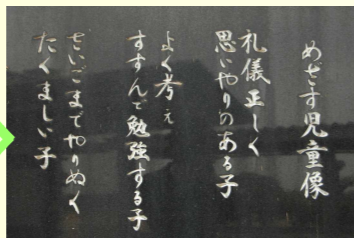 めざす児童像
礼儀正しく
思いやりのある子
よく考え
すすんで勉強する子
さいごまでやりぬく
たくましい子